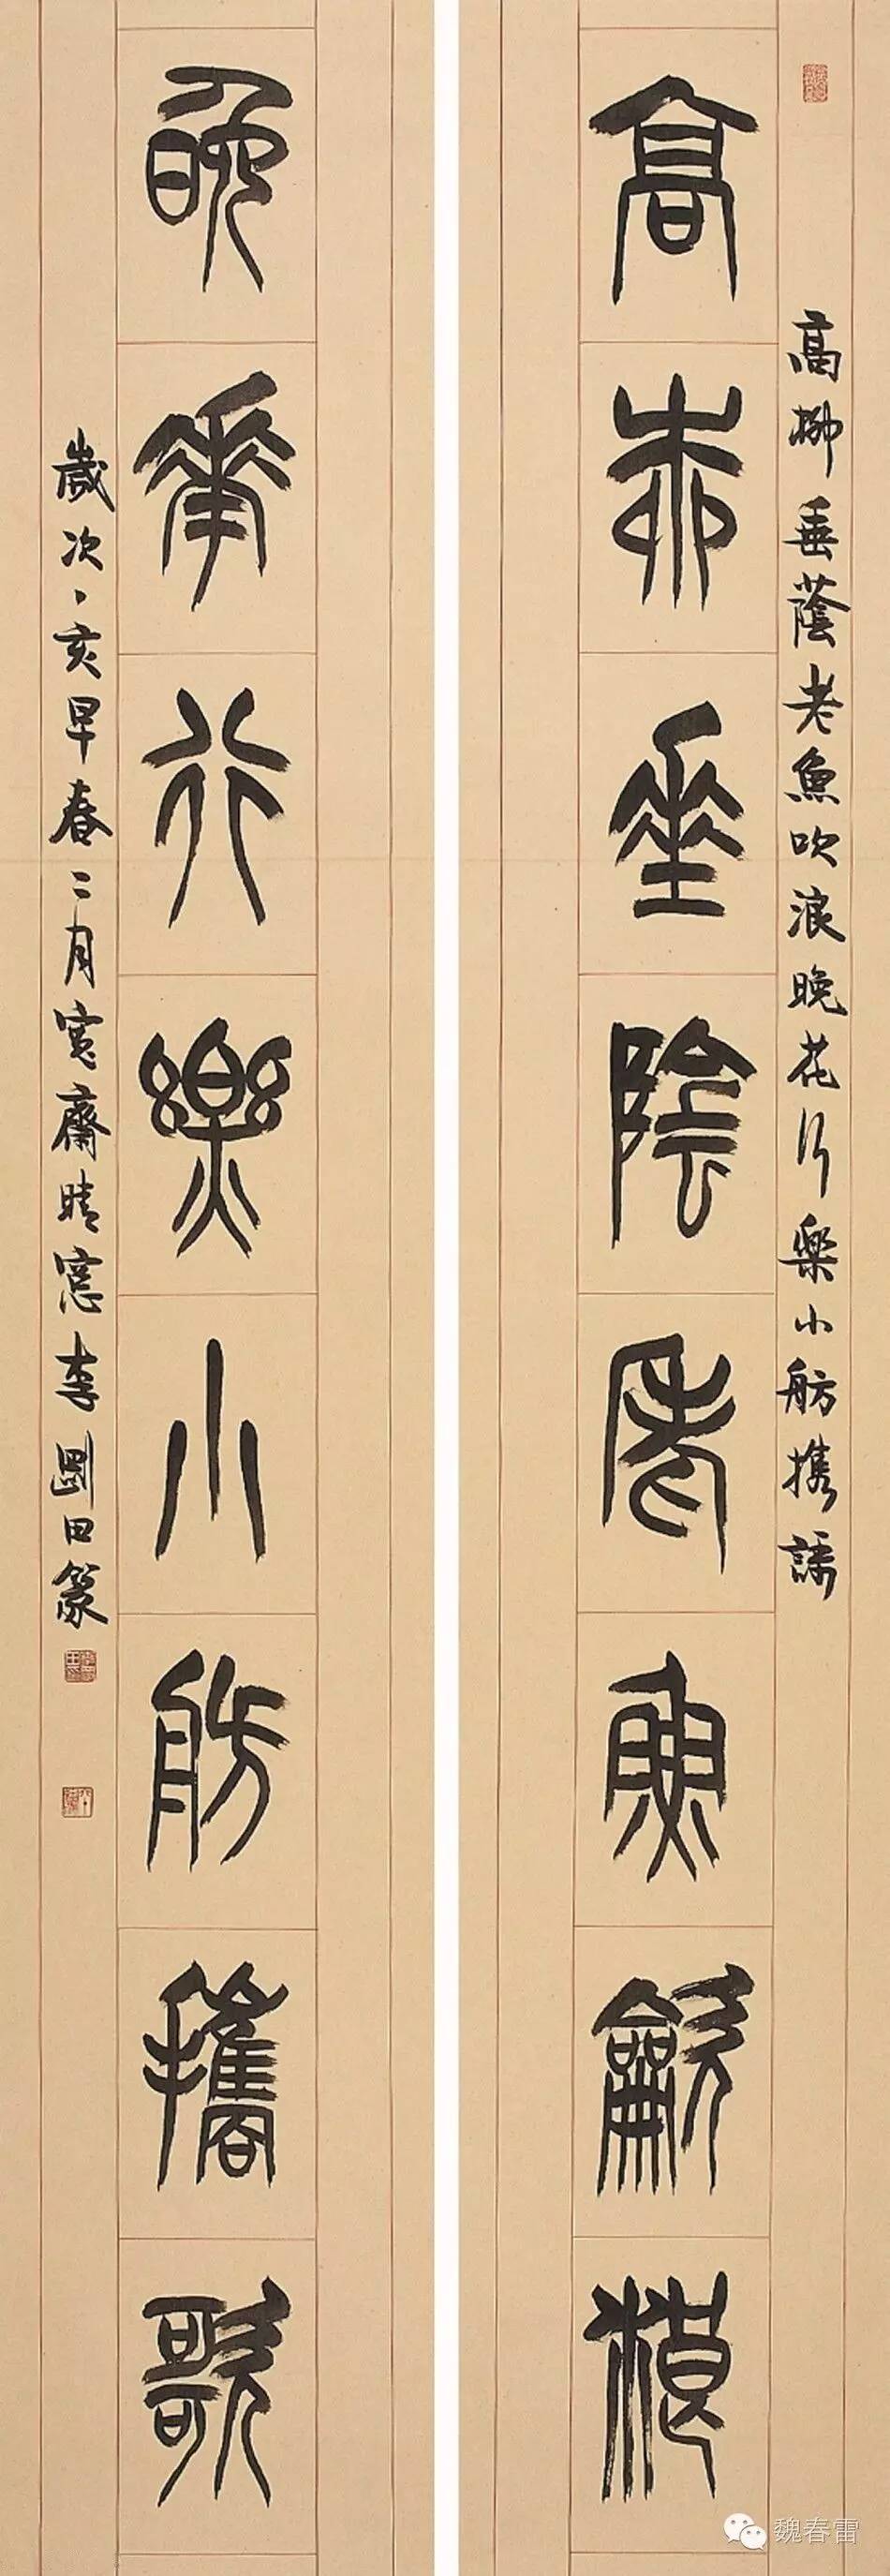 高柳垂陰老魚龡浪
高柳垂蔭老魚吹浪晚花行樂小舫攜謌
晚華行樂小舫攜歌
歲次丶亥早春二月寬齋晴窓李剛田篆
魏春雷